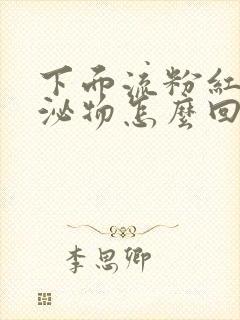 下面流粉紅
泌物怎麼回
李思卿